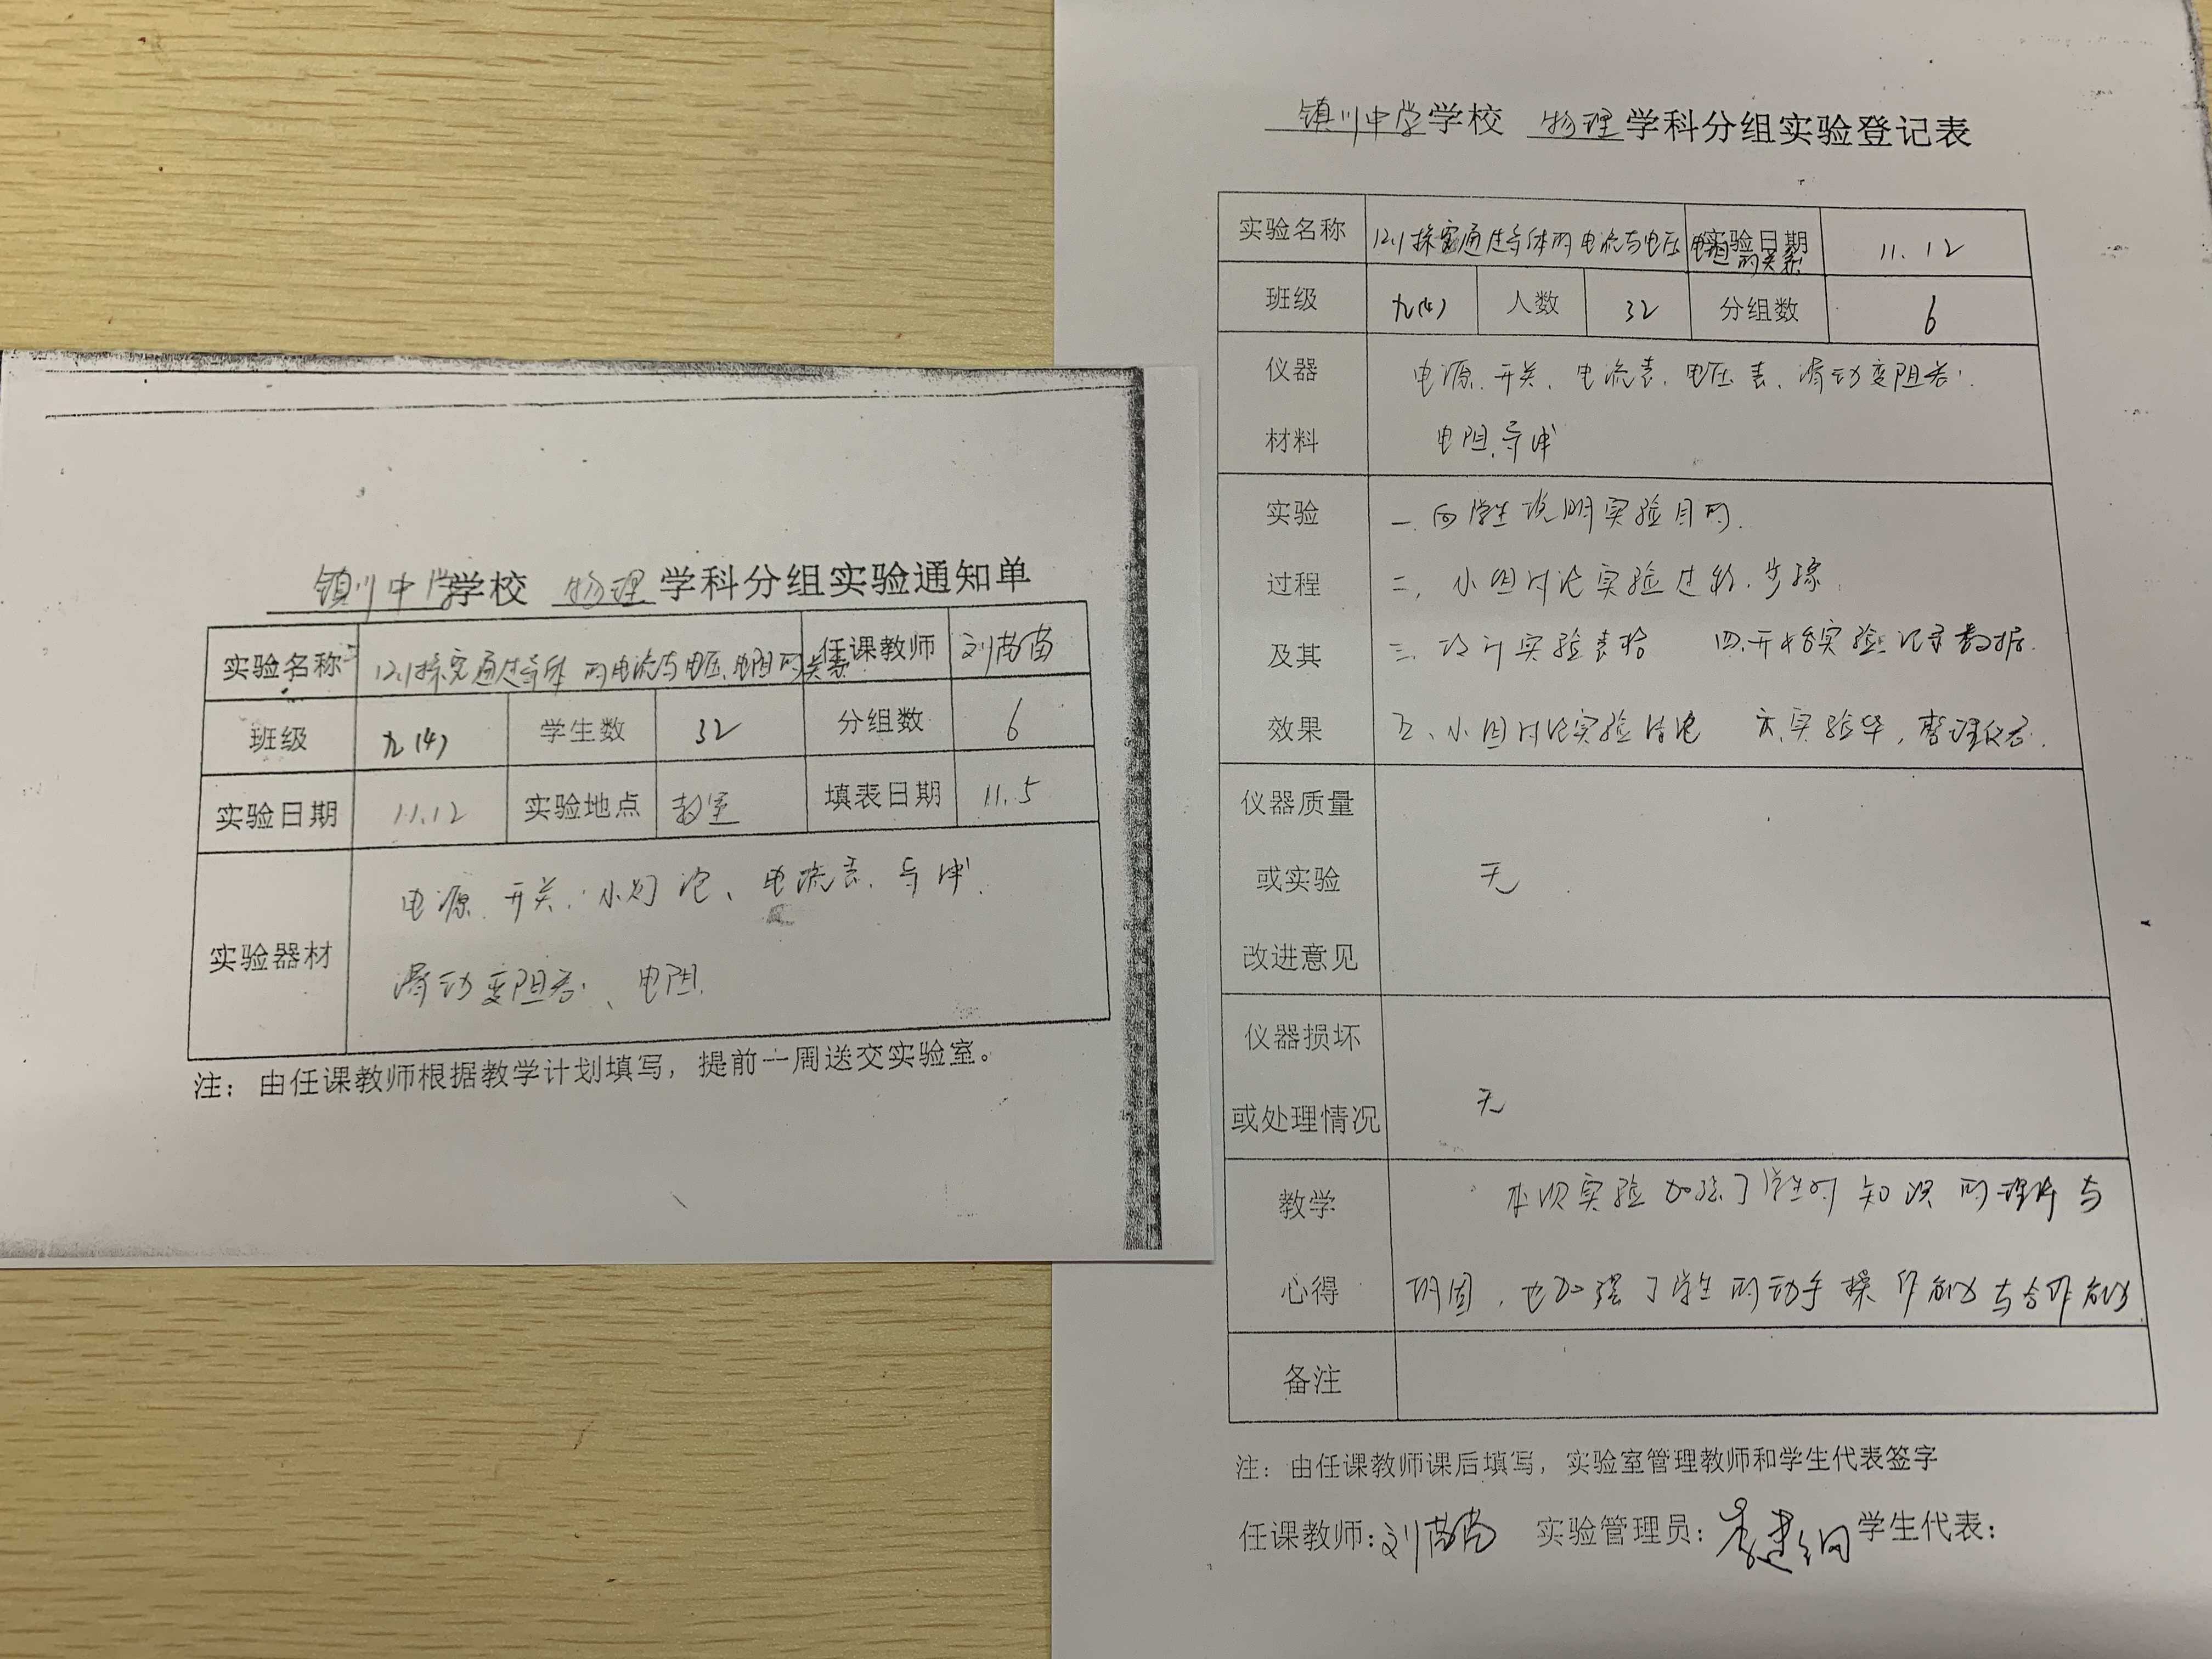 镇川中学学校 物理学科分组实验通知单
实验名称 12.1探究通过导体的电流与电压、电阻的关系 任课教师 刘苗苗
班级 九(4) 学生数 32 分组数 6
实验日期 11.12 实验地点 教室 填表日期 11.5
实验器材 电源、开关、小灯泡、电流表、导线、
滑动变阻器、电阻.
注：由任课教师根据教学计划填写，提前一周送交实验室。
镇川中学学校 物理学科分组实验登记表
实验名称 12.1探究通过导体的电流与电压电阻的关系 实验日期 11.12
班级 九(4) 人数 32 分组数 6
仪器 电源、开关、电流表、电压表、滑动变阻器、
材料 电阻、导线
实验 一、向学生说明实验目的.
过程 二、小组讨论实验过程、步骤.
及其 三、设计实验表格 四、开始实验记录数据.
效果 五、小组讨论实验结论 六、实验毕，整理仪器.
仪器质量
或实验 无
改进意见
仪器损坏
或处理情况 无
教学 本次实验加强了学生对知识的理解与
心得 巩固，也加强了学生的动手操作能力与合作能力
备注
注：由任课教师课后填写，实验室管理教师和学生代表签字
任课教师：刘苗苗 实验管理员： 学生代表：